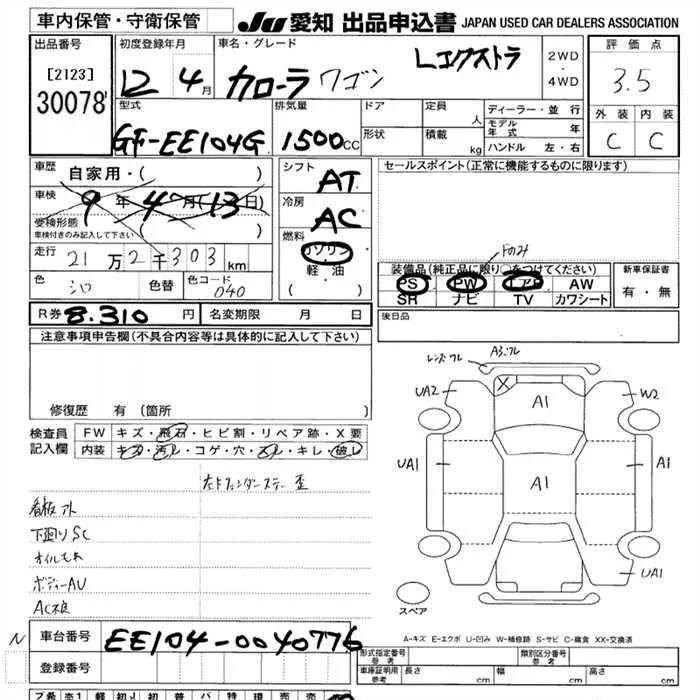 車内保管・守衛保管
JU 愛知 出品申込書 JAPAN USED CAR DEALERS ASSOCIATION
出品番号
[2123]
30078
初度登録年月
12 4月
車名・グレード
カローラ ワゴン Lエクストラ
2WD
・
4WD
評価点
3.5
外装 内装
C C
型式
GF-EE104G
排気量
1500CC
ドア
形状
定員 人
積載 kg
ディーラー・並行
モデル年式 年
ハンドル 左・右
車歴 自家用・( )
車検 9年4月(13日)
受検形態 ( )
車検付きのみ記入して下さい
走行 21万2千303km
色 シロ 色替 色コード 040
シフト AT
冷房 AC
燃料
ガソリン
軽・油
( )
セールスポイント(正常に機能するものに限ります)
Fのみ
装備品(純正品に限り○をつけてください)
PS PW エアB AW
SR ナビ TV カワシート
新車保証書
有・無
R券 8.310円 名変期限 月 日
後日品
注意事項申告欄(不具合内容等は具体的に記入して下さい)
修復歴 有(箇所
検査員記入欄
FW キズ・飛石・ヒビ割・リペア跡・X要
内装 キズ・汚レ・コゲ・穴・スレ・キレ・破レ
左Fフェンダーステー歪
看板アト
下廻りSC
オイルもれ
ボディーAU
AC不良
レンズワレ
UA2
A1
W2
UA1
A1
A1
UA1
スペア
A-キズ E-エクボ U-凹み W-補修跡 S-サビ C-腐食 XX-交換済
N
車台番号 EE104-0040776
登録番号
形式指定番号 参考
類別区分番号 参考
車庫証明用 参考 長さ cm 幅 cm 高さ cm